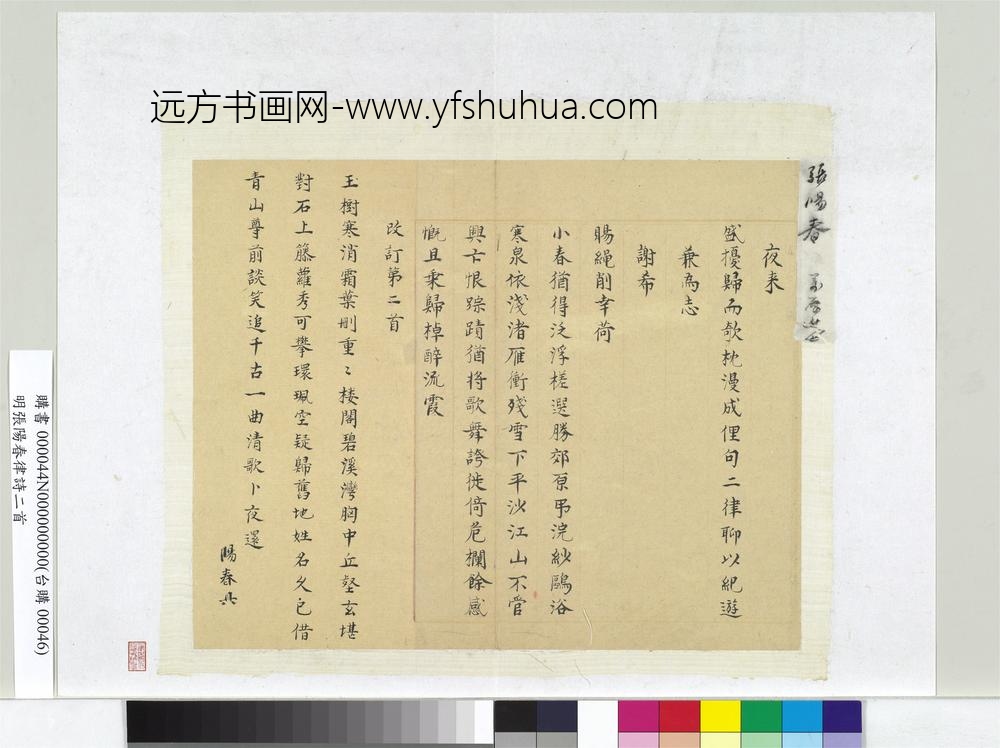 远方书画网-www.yfshuhua.com
張陽春
夜来
盛擾歸而欹枕漫成俚句二律聊以紀遊
兼為志
謝希
賜繩削幸荷
小春猶得泛浮槎選勝郊原吊浣紗鷗浴
寒泉依淺渚雁衝殘雪下平沙江山不管
興亡恨踪蹟猶将歌舞誇徙倚危欄餘感
慨且乗歸棹醉流霞
改訂第二首
玉樹寒消霜葉刪重〻楼閣碧溪灣胸中丘壑玄堪
對石上藤蘿秀可攀環珮空疑歸舊地姓名久已借
青山尊前談笑追千古一曲清歌卜夜還
陽春具
購書 000044N000000000(台購 00046)
明張陽春律詩二首